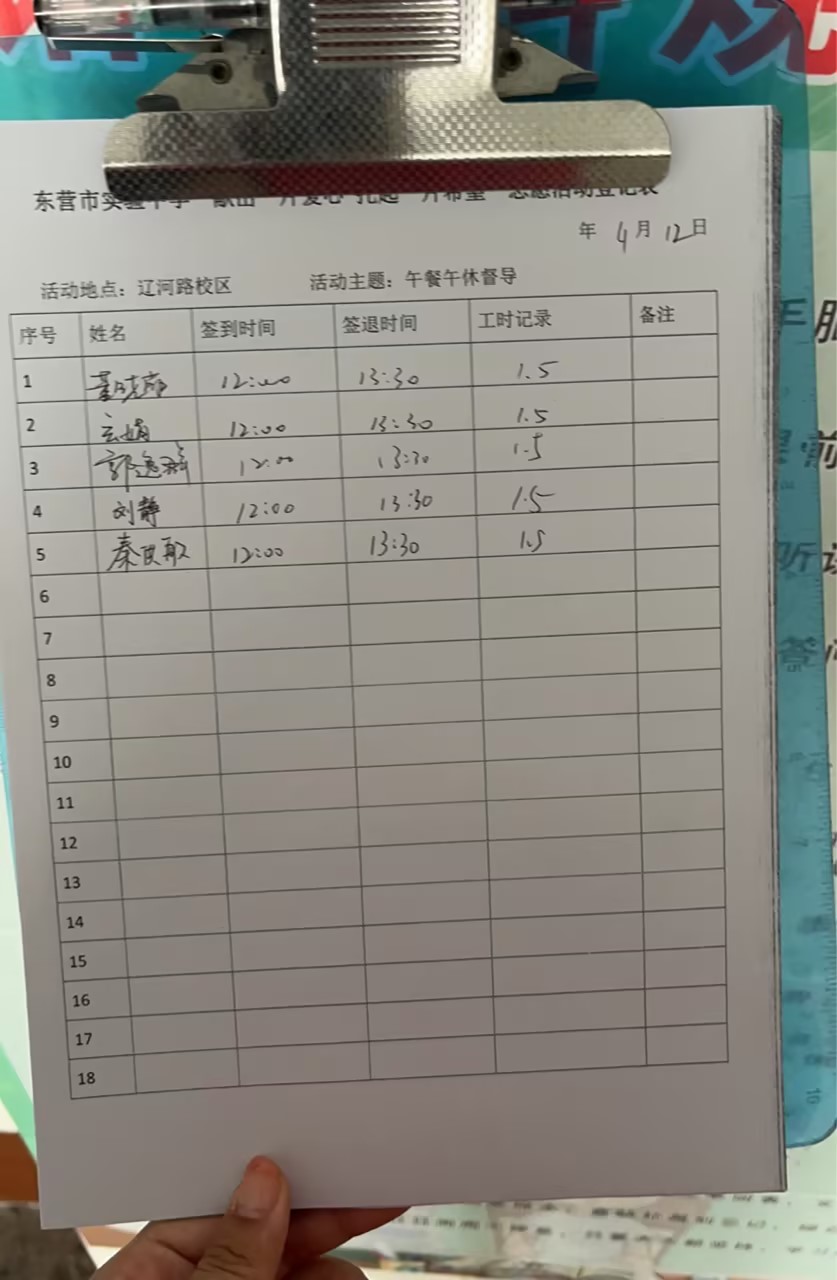 东营市实验中学“献出一片爱心 托起一片希望”志愿活动登记表
年 4月 12日
活动地点：辽河路校区 活动主题：午餐午休督导
序号 姓名 签到时间 签退时间 工时记录 备注
1 12:00 13:30 1.5
2 玄娟 12:00 13:30 1.5
3 12:00 13:30 1.5
4 刘静 12:00 13:30 1.5
5 12:00 13:30 1.5
6
7
8
9
10
11
12
13
14
15
16
17
18